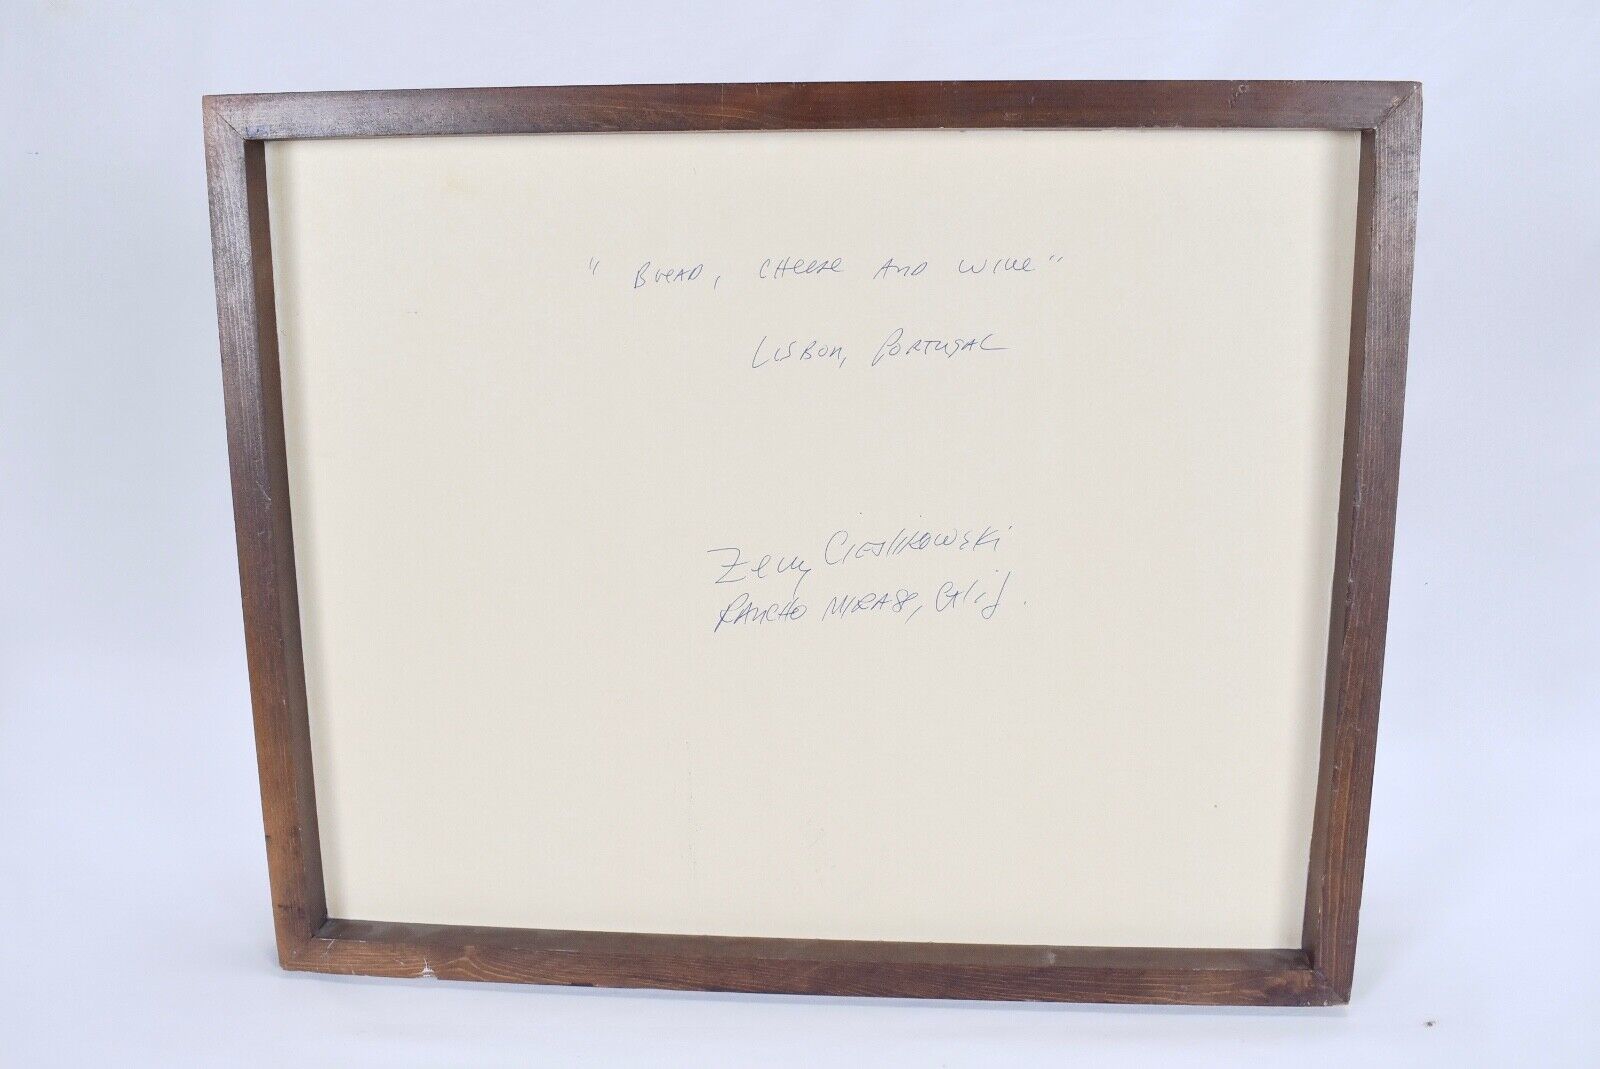 " BREAD, CHEESE AND WINE "
LISBON, PORTUGAL
Zeny CIESLIKOWSKI
RANCHO MIRAGE, Calif.